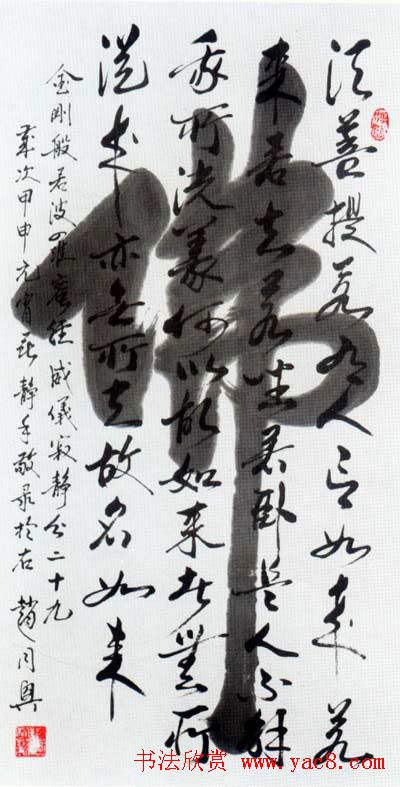 佛
須菩提若有人言如来若
来若去若坐若卧是人不解
我所说義何以故如来者無所
從来亦無所去故名如来
金剛般若波羅蜜經威儀寂静分二十九
歲次甲申元宵静手敬录於右 趙同興
书法欣赏 www.yac8.com